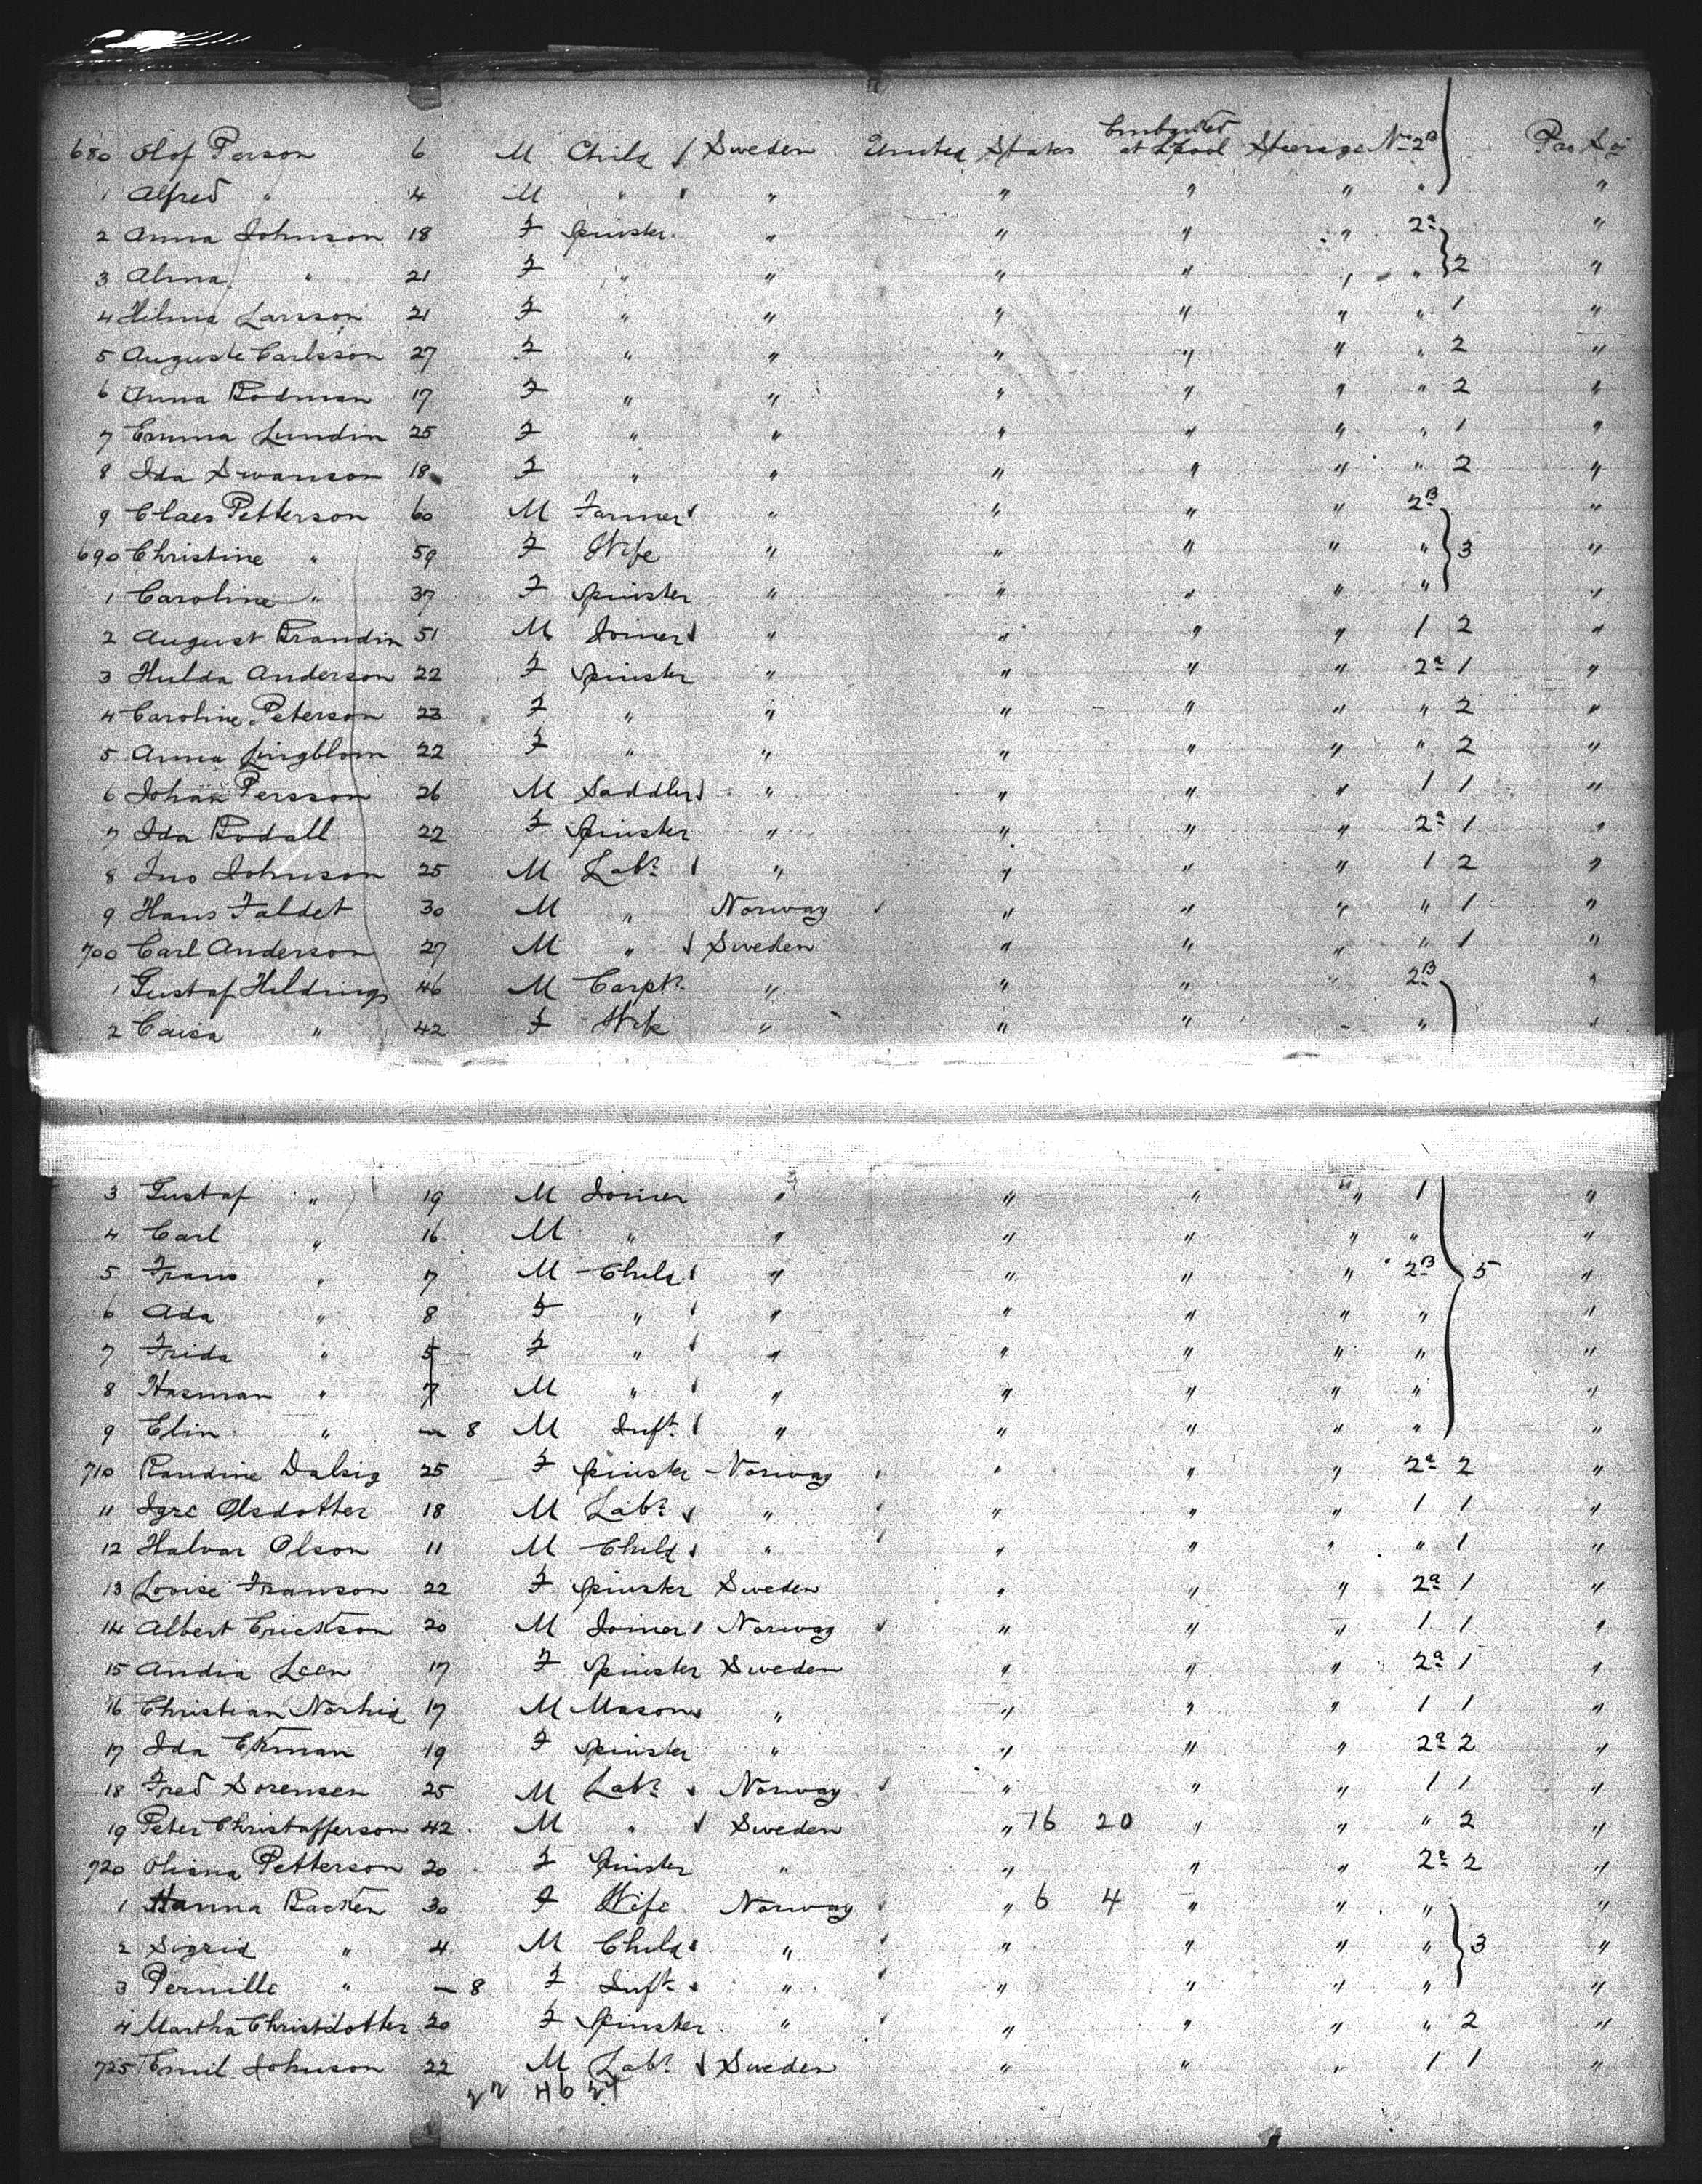 680 Olof Person 6 M Child Sweden United States Embarked at L'pool Steerage No 2B Pro Soj
1 Alfred " 4 M " " " " " " "
2 Anna Johnson 18 F Spinster " " " " 2a "
3 Alma " 21 F " " " " " " 2 "
4 Hilma Larsson 21 F " " " " " " 1 "
5 Auguste Carlsson 27 F " " " " " " 2 "
6 Anna Bodman 17 F " " " " " " 2 "
7 Emma Lundin 25 F " " " " " " 1 "
8 Ida Swanson 18 F " " " " " " 2 "
9 Claes Petterson 60 M Farmer " " " " 2B "
690 Christine " 59 F Wife " " " " " 3 "
1 Caroline " 37 F Spinster " " " " " "
2 August Brandin 51 M Joiner " " " " 1 2 "
3 Hulda Anderson 22 F Spinster " " " " 2a 1 "
4 Caroline Peterson 23 F " " " " " " 2 "
5 Anna Lingblom 22 F " " " " " " 2 "
6 Johan Persson 26 M Saddler " " " " 1 1 "
7 Ida Bodell 22 F Spinster " " " " 2a 1 "
8 Jno Johnson 25 M Labr " " " " 1 2 "
9 Hans Faldet 30 M " Norway " " " " 1 "
700 Carl Anderson 27 M " Sweden " " " " 1 "
1 Gustaf Hildrings 46 M Carptr " " " " 2B "
2 Caisa " 42 F Wife " " " " " "
3 Gustaf " 19 M Joiner " " " " 1 "
4 Carl " 16 M " " " " " " "
5 Frans " 7 M Child " " " " 2B 5 "
6 Ada " 8 F " " " " " " "
7 Frida " 5 F " " " " " " "
8 Hasman " 7 M " " " " " " "
9 Elin " — 8 M Inft " " " " " "
710 Randine Dalsig 25 F Spinster Norway " " " 2a 2 "
11 Igre Olsdotter 18 M Labr " " " " 1 1 "
12 Halvar Olson 11 M Child " " " " " 1 "
13 Lovise Franson 22 F Spinster Sweden " " " 2a 1 "
14 Albert Erickson 20 M Joiner Norway " " " 1 1 "
15 Andia Leen 17 F Spinster Sweden " " " 2a 1 "
16 Christian 17 M Mason " " " " 1 1 "
17 Ida Ekman 19 F Spinster " " " " 2a 2 "
18 Fred Sorensen 25 M Labr Norway " " " 1 1 "
19 Peter Christofferson 42 M " Sweden " 16 20 " " " 2 "
720 Oliana Petterson 20 F Spinster " " " " 2a 2 "
1 Hanna Backen 30 F Wife Norway " 6 4 " " " "
2 Sigrid " 4 M Child " " " " " 3 "
3 Pernille " — 8 F Inft " " " " " "
4 Martha Christdotter 20 F Spinster " " " " " 2 "
725 Emil Johnson 22 M Labr Sweden " " " 1 1 "
22 46 24